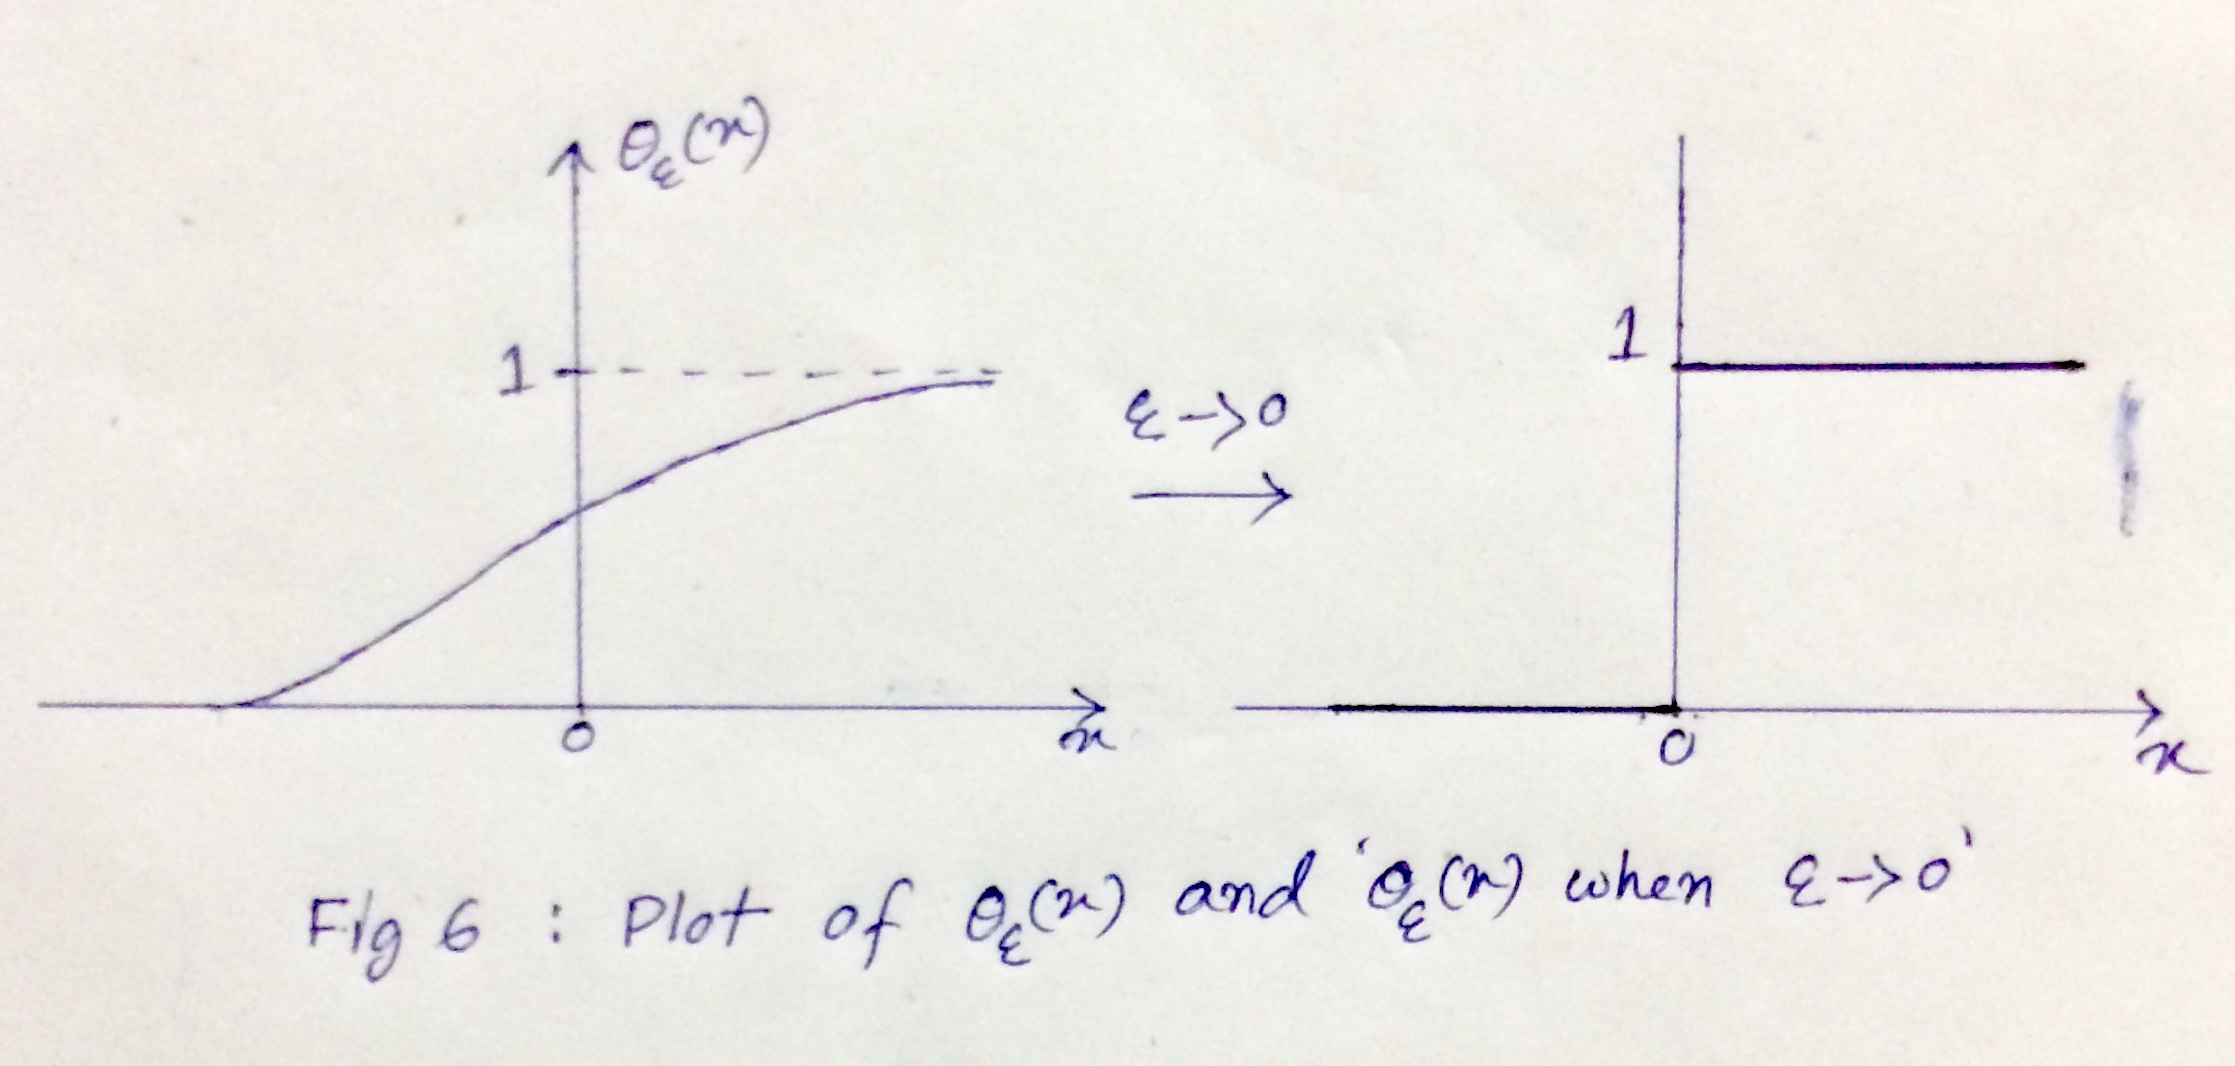 θ_ε(x)
1
0
x
ε→0
1
0
x
Fig 6 : Plot of θ_ε(x) and 'θ_ε(x) when ε→0'